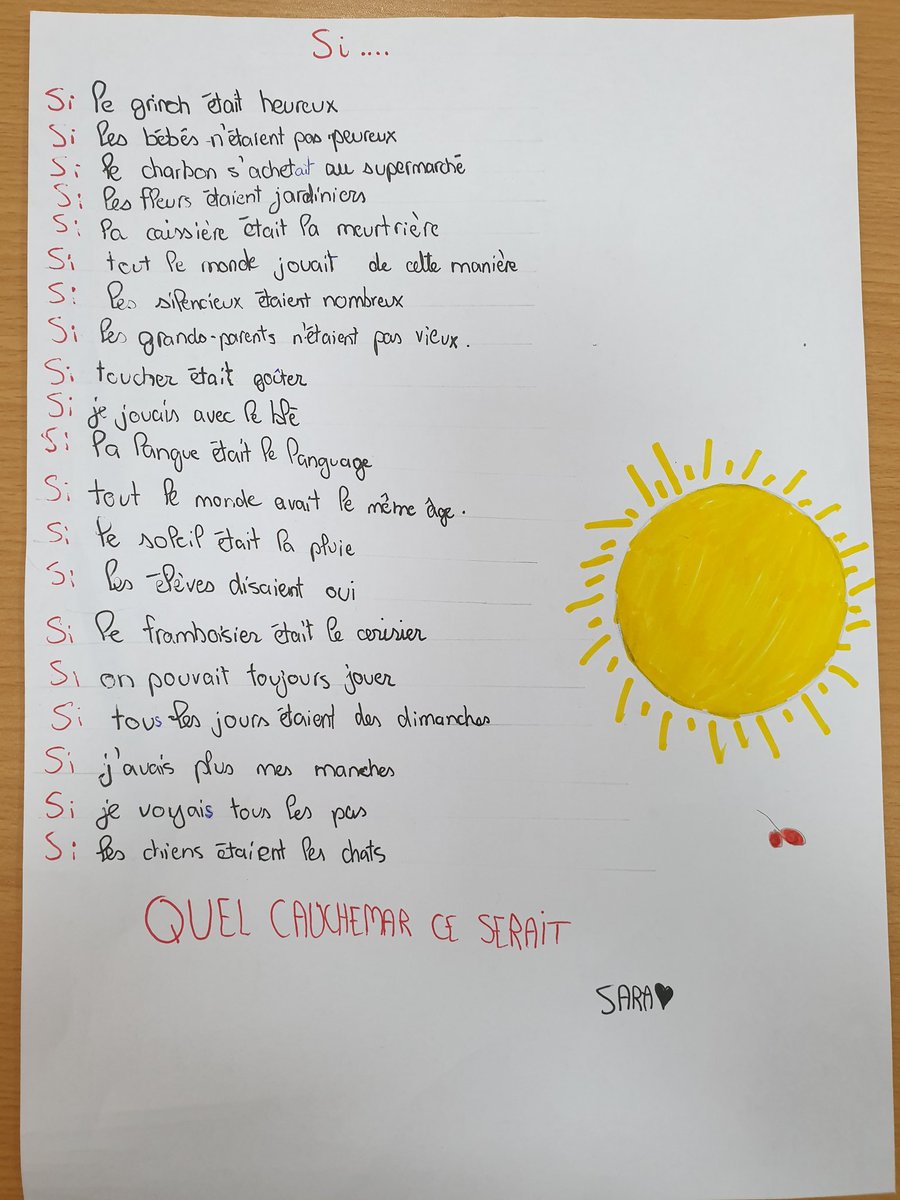 Si....
Si le grinch était heureux
Si les bébés n'étaient pas peureux
Si le charbon s'achetait au supermarché
Si les fleurs étaient jardiniers
Si la caissière était la meurtrière
Si tout le monde jouait de cette manière
Si les silencieux étaient nombreux
Si les grands-parents n'étaient pas vieux.
Si toucher était goûter
Si je jouais avec le blé
Si la langue était le language
Si tout le monde avait le même âge.
Si le soleil était la pluie
Si les élèves disaient oui
Si le framboisier était le cerisier
Si on pouvait toujours jouer
Si tous les jours étaient des dimanches
Si j'avais plus mes manches
Si je voyais tous les pas
Si les chiens étaient les chats
QUEL CAUCHEMAR CE SERAIT
SARA♥